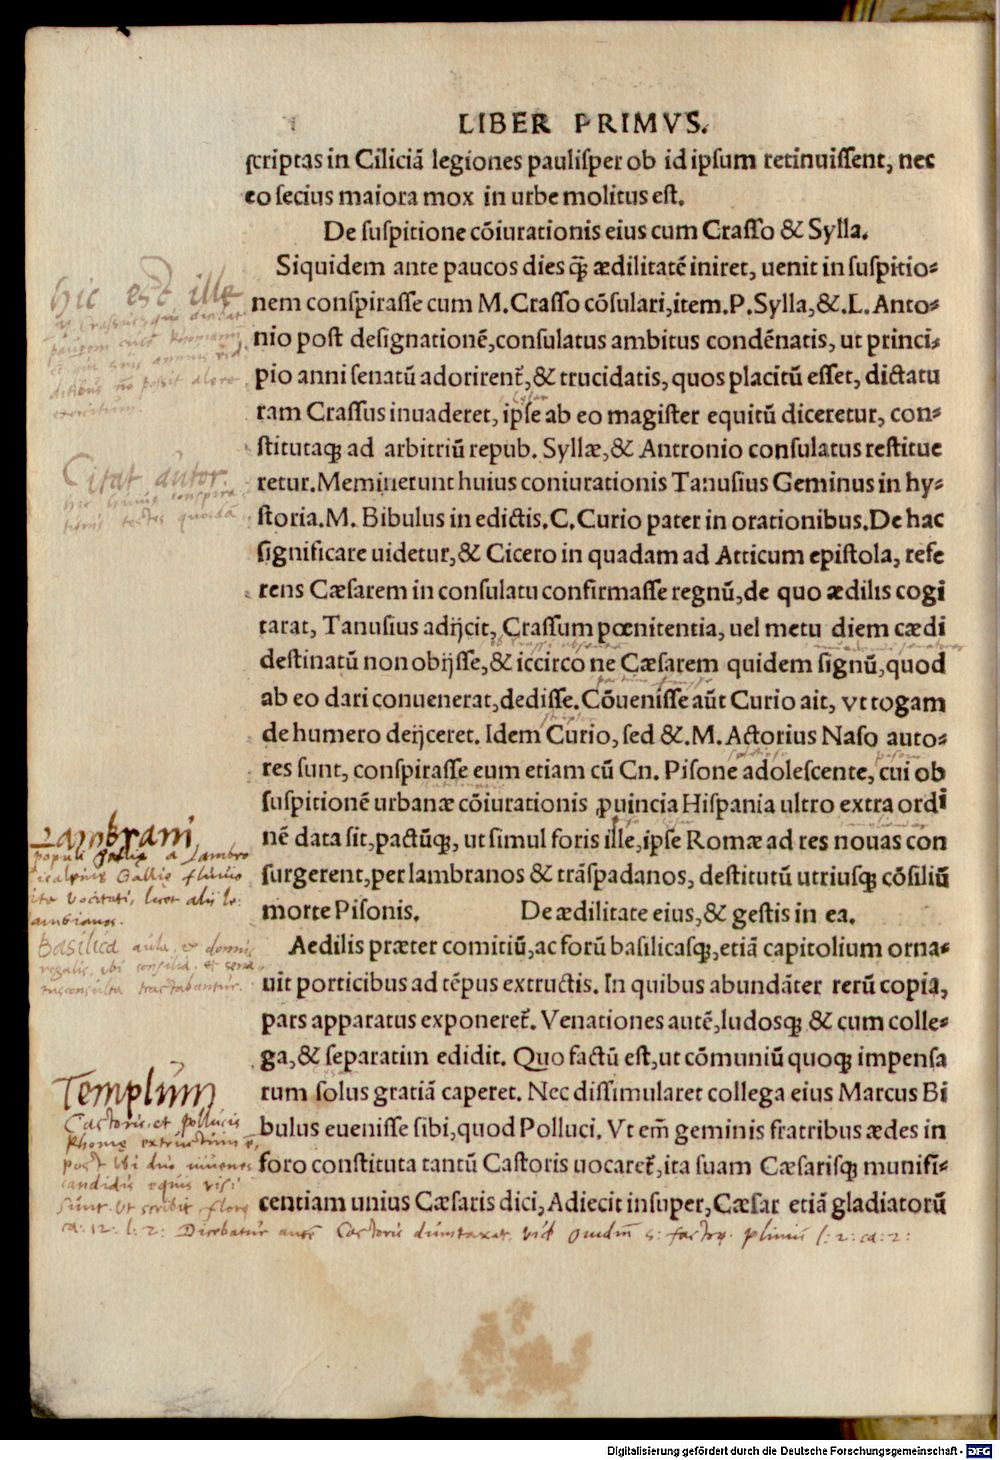 LIBER PRIMVS.
scriptas in Ciliciā legiones paulisper ob id ipsum retinuissent, nec
eo secius maiora mox in urbe molitus est.
De suspitione cōiurationis eius cum Crasso & Sylla.
Siquidem ante paucos dies q̄ ædilitatē iniret, uenit in suspitio-
nem conspirasse cum M. Crasso cōsulari, item .P. Sylla, & .L. Anto-
nio post designationē, consulatus ambitus condēnatis, ut princi-
pio anni senatū adorirent̄, & trucidatis, quos placitū esset, dictatu
ram Crassus inuaderet, ipse ab eo magister equitū diceretur, con-
stitutaq; ad arbitriū repub. Syllæ, & Antronio consulatus restitue
retur. Meminerunt huius coniurationis Tanusius Geminus in hy-
storia. M. Bibulus in edictis. C. Curio pater in orationibus. De hac
significare uidetur, & Cicero in quadam ad Atticum epistola, refe
rens Cæsarem in consulatu confirmasse regnū, de quo ædilis cogi
tarat, Tanusius adijcit, Crassum pœnitentia, uel metu diem cædi
destinatū non obijsse, & iccirco ne Cæsarem quidem signū, quod
ab eo dari conuenerat, dedisse. Cōuenisse aūt Curio ait, vt togam
de humero deijceret. Idem Curio, sed & .M. Actorius Naso auto-
res sunt, conspirasse eum etiam cū Cn. Pisone adolescente, cui ob
suspitionē urbanæ cōiurationis ꝓuincia Hispania ultro extra ordi
nē data sit, pactūq;, ut simul foris ille, ipse Romæ ad res nouas con
surgerent, per lambranos & trāspadanos, destitutū utriusq; cōsiliū
morte Pisonis. De ædilitate eius, & gestis in ea.
Aedilis præter comitiū, ac forū basilicasq;, etiā capitolium orna-
uit porticibus ad tēpus extructis. In quibus abundāter rerū copia,
pars apparatus exponeret̄. Venationes autē, ludosq; & cum colle-
ga, & separatim edidit. Quo factū est, ut cōmuniū quoq; impensa
rum solus gratiā caperet. Nec dissimularet collega eius Marcus Bi
bulus euenisse sibi, quod Polluci. Vt em̄ geminis fratribus ædes in
foro constituta tantū Castoris uocaret̄, ita suam Cæsarisq; munifi-
centiam unius Cæsaris dici, Adiecit insuper, Cæsar etiā gladiatorū
Hic est ille
Citat autor
Lambrani
populi Gallie a Lambro
Gallie fluuio
ita vocitati, licet alij le:
ambianos.
Basilica aula
regalis. ubi consilia. et sena
tusconsulta tractabantur.
Templum
Castoris. et pollucis
Rhome extructum
post ubi duo iuuenes
candidis equis visi
sunt. Ut scribit flor
ca: 12: l: 2: Dicebatur Castoris dumtaxat. plinius l: 2: ca: 2:
Digitalisierung gefördert durch die Deutsche Forschungsgemeinschaft - DFG